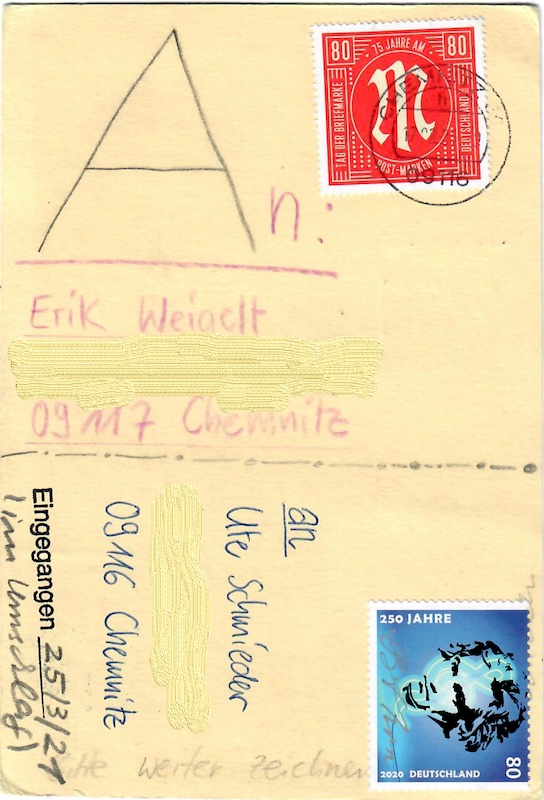 80 75 JAHRE AM 80
TAG DER BRIEFMARKE
DEUTSCHLAND
M
POST-MARKEN
09116
An:
Erik Weigelt
09117 Chemnitz
an
Ute Schmieder
09116 Chemnitz
Eingegangen 25/3/21
(im Umschlag)
250 JAHRE
2020 DEUTSCHLAND
80
Bitte weiter zeichnen